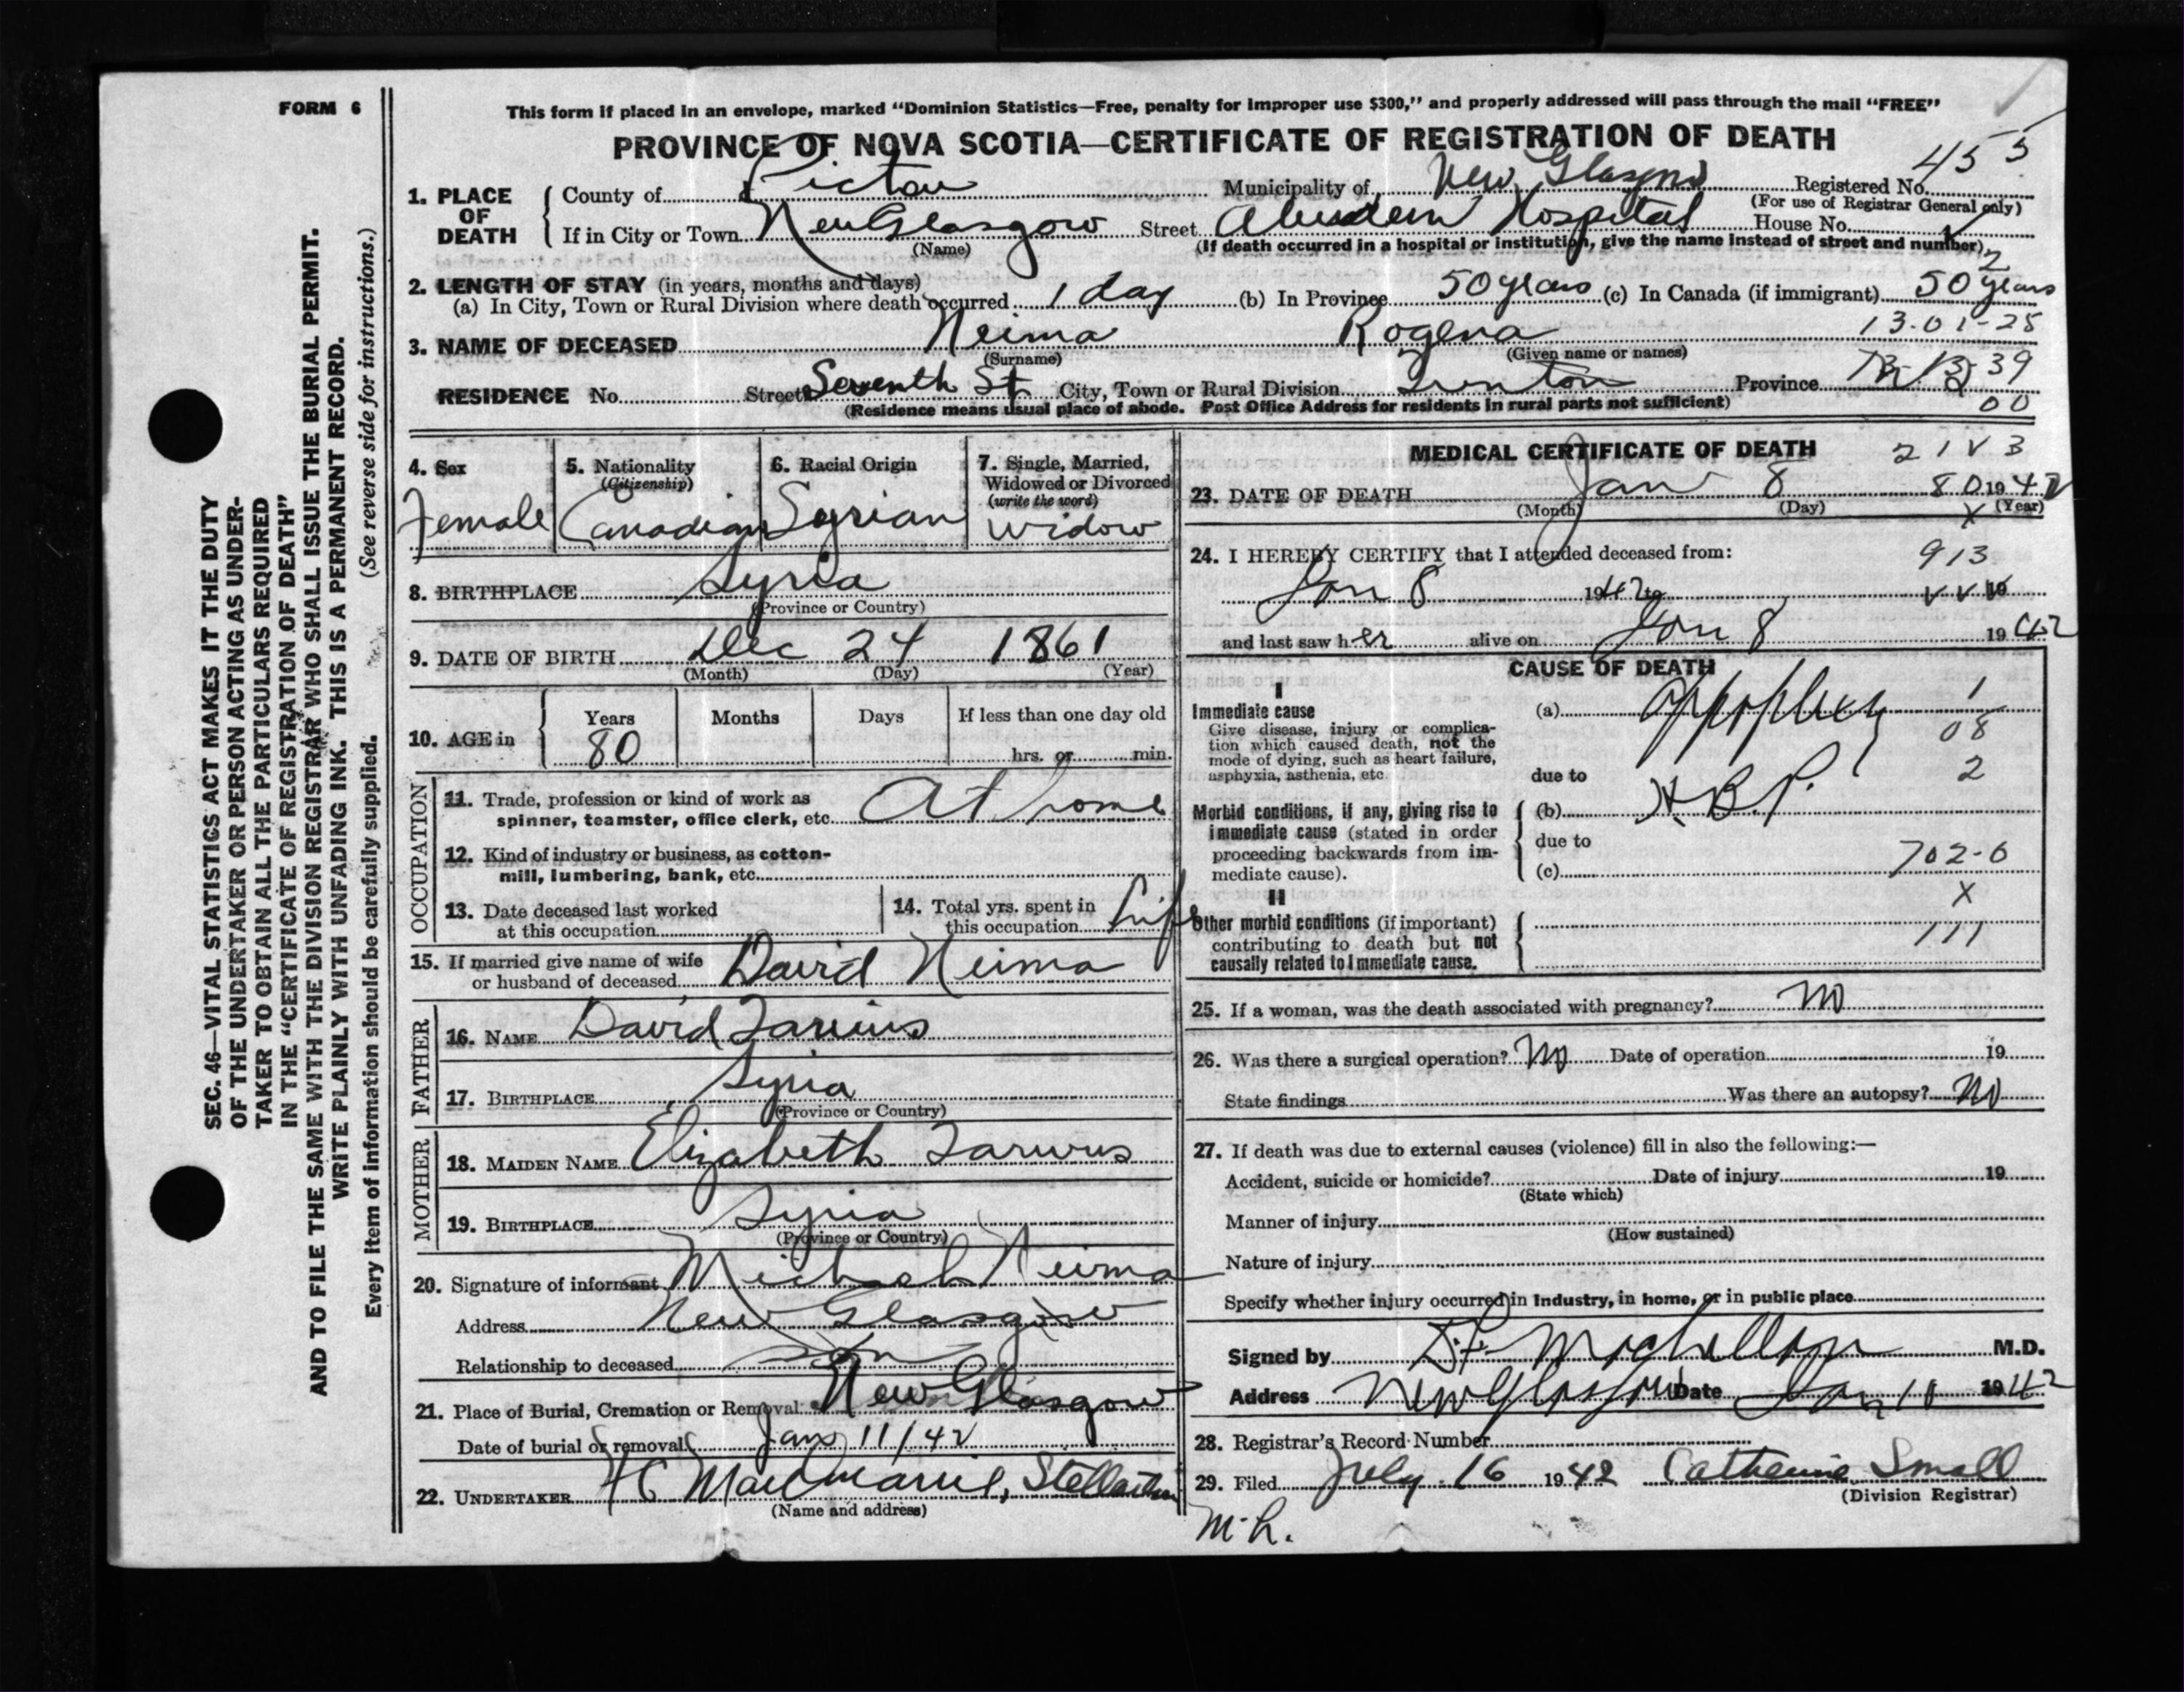 FORM 6
This form if placed in an envelope, marked “Dominion Statistics—Free, penalty for improper use $300,” and properly addressed will pass through the mail “FREE”
PROVINCE OF NOVA SCOTIA—CERTIFICATE OF REGISTRATION OF DEATH
455
1. PLACE OF DEATH
County of Pictou Municipality of New Glasgow Registered No.
(For use of Registrar General only)
If in City or Town New Glasgow Street Aberdeen Hospital House No.
(Name) (If death occurred in a hospital or institution, give the name instead of street and number)
2
2. LENGTH OF STAY (in years, months and days)
(a) In City, Town or Rural Division where death occurred 1 day (b) In Province 50 years (c) In Canada (if immigrant) 50 years
13-01-25
3. NAME OF DECEASED Neima Rogena
(Surname) (Given name or names)
RESIDENCE No. Street Seventh St. City, Town or Rural Division Province 39
(Residence means usual place of abode. Post Office Address for residents in rural parts not sufficient)
00
4. Sex
Female
5. Nationality
(Citizenship)
Canadian
6. Racial Origin
Syrian
7. Single, Married,
Widowed or Divorced
(write the word)
Widow
8. BIRTHPLACE Syria
(Province or Country)
9. DATE OF BIRTH Dec 24 1861
(Month) (Day) (Year)
10. AGE in
Years Months Days If less than one day old
80 hrs. or min.
OCCUPATION
11. Trade, profession or kind of work as
spinner, teamster, office clerk, etc. At home
12. Kind of industry or business, as cotton-
mill, lumbering, bank, etc.
13. Date deceased last worked
at this occupation
14. Total yrs. spent in
this occupation Life
15. If married give name of wife
or husband of deceased David Neima
FATHER
16. NAME David
17. BIRTHPLACE Syria
(Province or Country)
MOTHER
18. MAIDEN NAME Elizabeth
19. BIRTHPLACE Syria
(Province or Country)
20. Signature of informant Michael Neima
Address New Glasgow
Relationship to deceased Son
21. Place of Burial, Cremation or Removal New Glasgow
Date of burial or removal Jan 11/42
22. UNDERTAKER Stellarton
(Name and address)
MEDICAL CERTIFICATE OF DEATH
21V3
23. DATE OF DEATH Jan 8 80 1942
(Month) (Day) (Year)
X
24. I HEREBY CERTIFY that I attended deceased from:
913
Jan 8 1942 to 19
and last saw her alive on Jan 8 1942
CAUSE OF DEATH
I
Immediate cause
Give disease, injury or complica-
tion which caused death, not the
mode of dying, such as heart failure,
asphyxia, asthenia, etc.
(a) Apoplexy 1
08
due to 2
Morbid conditions, if any, giving rise to
immediate cause (stated in order
proceeding backwards from im-
mediate cause).
(b) H.B.P.
due to
(c) 702-0
X
II
Other morbid conditions (if important)
contributing to death but not
causally related to immediate cause.
111
25. If a woman, was the death associated with pregnancy? No
26. Was there a surgical operation? No Date of operation 19
State findings Was there an autopsy? No
27. If death was due to external causes (violence) fill in also the following:—
Accident, suicide or homicide? Date of injury 19
(State which)
Manner of injury
(How sustained)
Nature of injury
Specify whether injury occurred in industry, in home, or in public place
Signed by M.D.
Address New Glasgow Date Jan 10 1942
28. Registrar's Record Number
29. Filed July 16 1942 Catherine Small
(Division Registrar)
SEC. 46—VITAL STATISTICS ACT MAKES IT THE DUTY
OF THE UNDERTAKER OR PERSON ACTING AS UNDER-
TAKER TO OBTAIN ALL THE PARTICULARS REQUIRED
IN THE “CERTIFICATE OF REGISTRATION OF DEATH”
AND TO FILE THE SAME WITH THE DIVISION REGISTRAR WHO SHALL ISSUE THE BURIAL PERMIT.
WRITE PLAINLY WITH UNFADING INK. THIS IS A PERMANENT RECORD.
Every item of information should be carefully supplied. (See reverse side for instructions.)